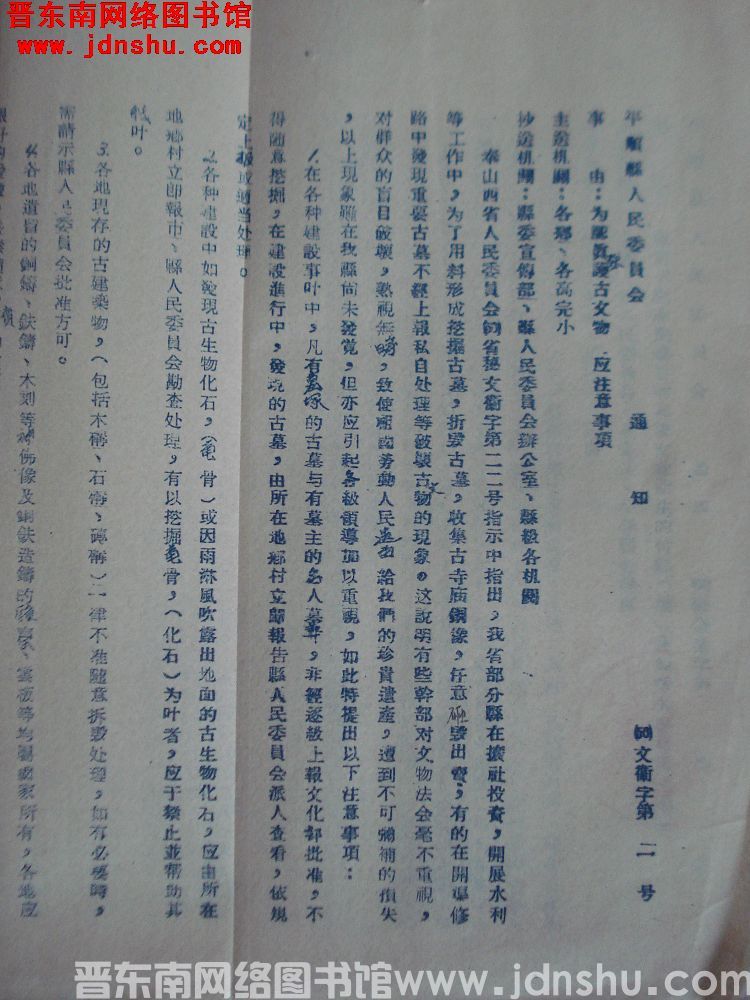 晋东南网络图书馆
www.jdnshu.com
平順縣人民委員會 通知 文衛字第二号
事由：为認真護古文物应注意事項
主送机關：各鄉、各高完小
抄送机關：縣委宣傳部、縣人民委員会辦公室、縣級各机關
奉山西省人民委員会省秘文衛字第二二号指示中指出，我省部分縣在擴社投資，開展水利
等工作中，为了用料形成挖掘古墓，折毁古墓，收集古寺庙銅像，任意砸毁出賣，有的在開渠修
路中發現重要古墓不經上報私自处理等破壞古文物的現象。这説明有些幹部对文物法会毫不重視，
对群众的盲目破壞，熟視無睹，致使祖國劳動人民遺留給我們的珍貴遺產，遭到不可彌補的損失
，以上現象雖在我縣尚未發覚，但亦应引起各級領導加以重視，如此特提出以下注意事項：
1、在各种建設事叶中，凡有的古墓与有墓主的名人墓葬，非經逐級上報文化部批准，不
得随意挖掘，在建設進行中，發現的古墓，由所在地鄉村立即報告縣人民委員会派人查看，依規
定上報或適当处理。
2、各种建設中如發現古生物化石，（竜骨）或因雨淋風吹露出地面的古生物化石，应由所在
地鄉村立即報市、縣人民委員会勘查处理，有以挖掘竜骨，（化石）为叶者，应于禁止並帮助其
轉叶。
3、各地現存的古建築物，（包括木構、石構、磚構）一律不准随意拆毁处理，如有必要時，
需請示縣人民委員会批准方可。
4、各地遺留的銅鑄、鉄鑄、木刻等神佛像及銅鉄造鑄的雲板等均屬國家所有，各地应
晋东南网络图书馆 www.jdnshu.com